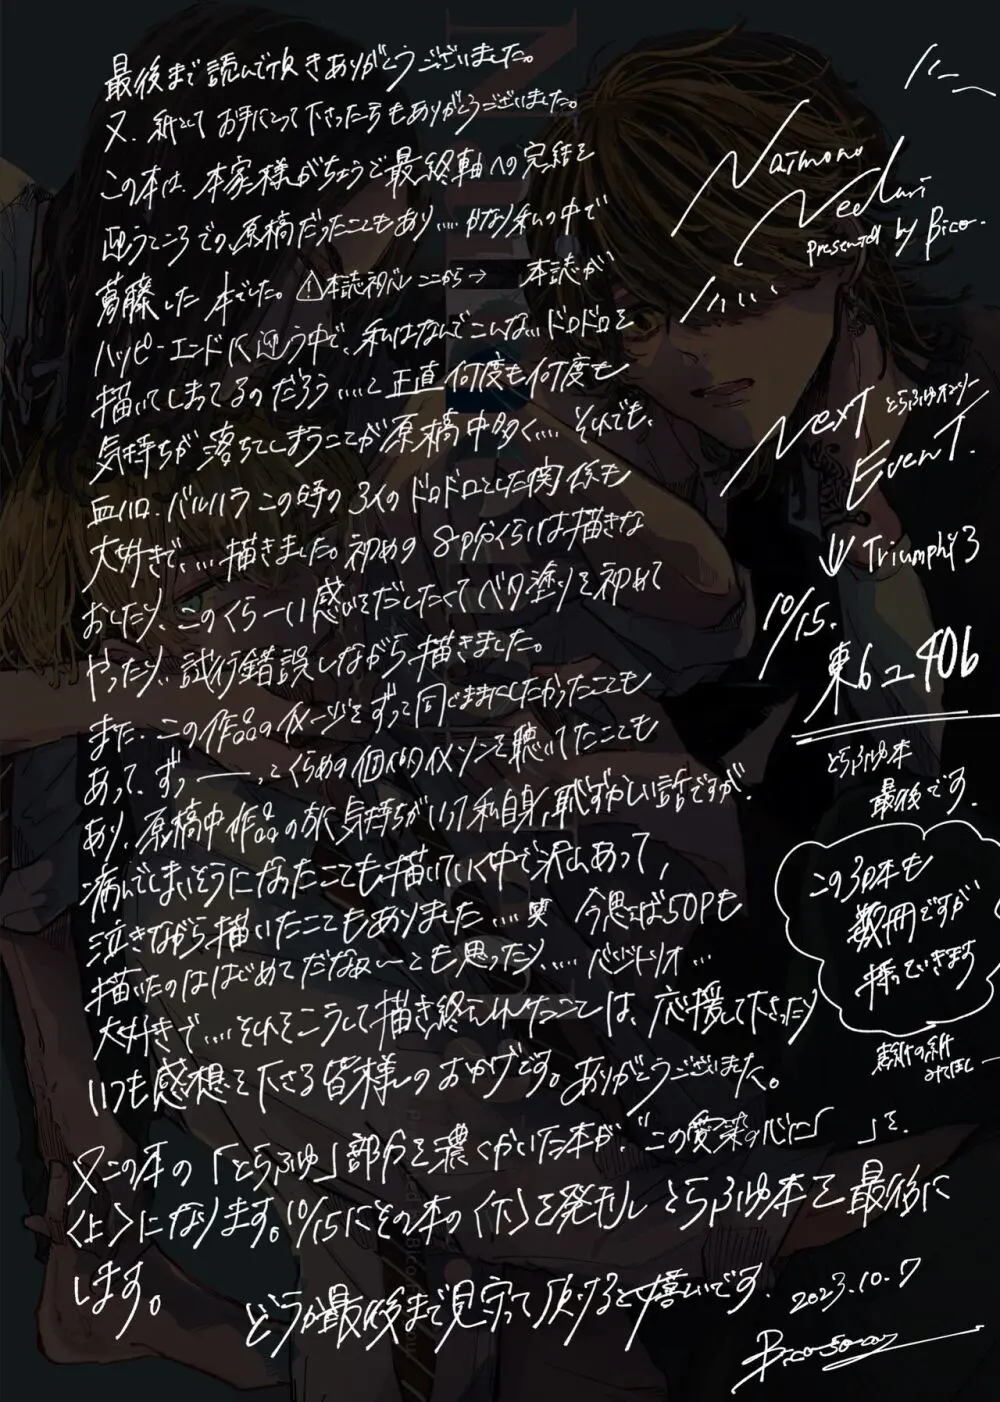 最後まで読んで頂きありがとうございました。
又、紙としてお手にとって下さった方もありがとうございました。
この本は、本家様がちょうど最終軸への完結を
迎うところでの、原稿だったこともあり.....かなり私の中で
葛藤した本でした。⚠本誌ネタバレここから→ 本誌が
ハッピーエンドに迎う中で、私はなんでこんな..ドロドロを
描いてしまってるのだろう.....と正直何度も何度も
気持ちが落ちてしまうことが原稿中多く.... それでも、
血ハロ、バルハラこの時の3人のドロドロとした関係も
大好きで、...描きました。初めの8P分くらいは描きな
おしたり、このくらーい感じをだしたくてベタ塗りを初めて
やったり、試行錯誤しながら描きました。
また、この作品のイメージをずっと同じままにしたかったことも
あって、ずっーーっとくらめの個人的イメソンを聴いてたことも
あり、原稿中作品の方に気持ちがいって私自身、恥ずかしい話ですが、
病んでしまいそうになったことも描いていく中で沢山あって、
泣きながら描いたこともありました....笑 今思えば50Pも
描いたのははじめてだなぁ〜とも思ったり..... バジトリオ...
大好きで....それをこうして描き終えれたことは、応援して下さったり
いつも感想を下さる皆様のおかげです。ありがとうございました。
又この本の「とらふゆ」部分を濃くかいた本が、"この愛染の心に「 」を、
〈上〉になります。10/15にその本の〈下〉を発刊しとらふゆ本を最後に
します。
どうか最後まで見守って頂けると嬉しいです.
2023.10.7
Naimono
Nedari
presented by Bico.
Next とらふゆオンリー
Event.
↓ Triumph!3
10/15.
東6ユ40b
とらふゆ本
最後です.
この3P本も
数冊ですが
持っていきます
表紙の紙
みてほしー